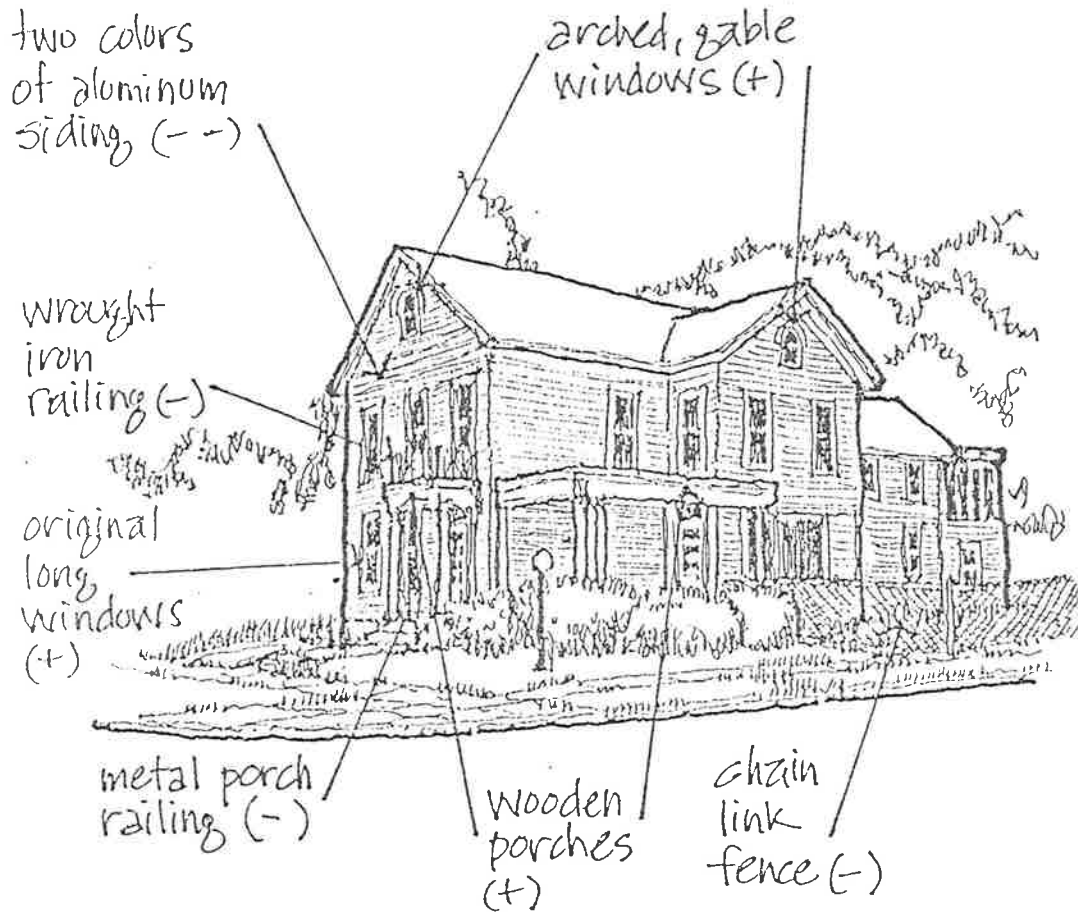 two colors
of aluminum
siding (- -)
arched, gable
windows (+)
wrought
iron
railing (-)
original
long
windows
(+)
metal porch
railing (-)
wooden
porches
(+)
chain
link
fence (-)